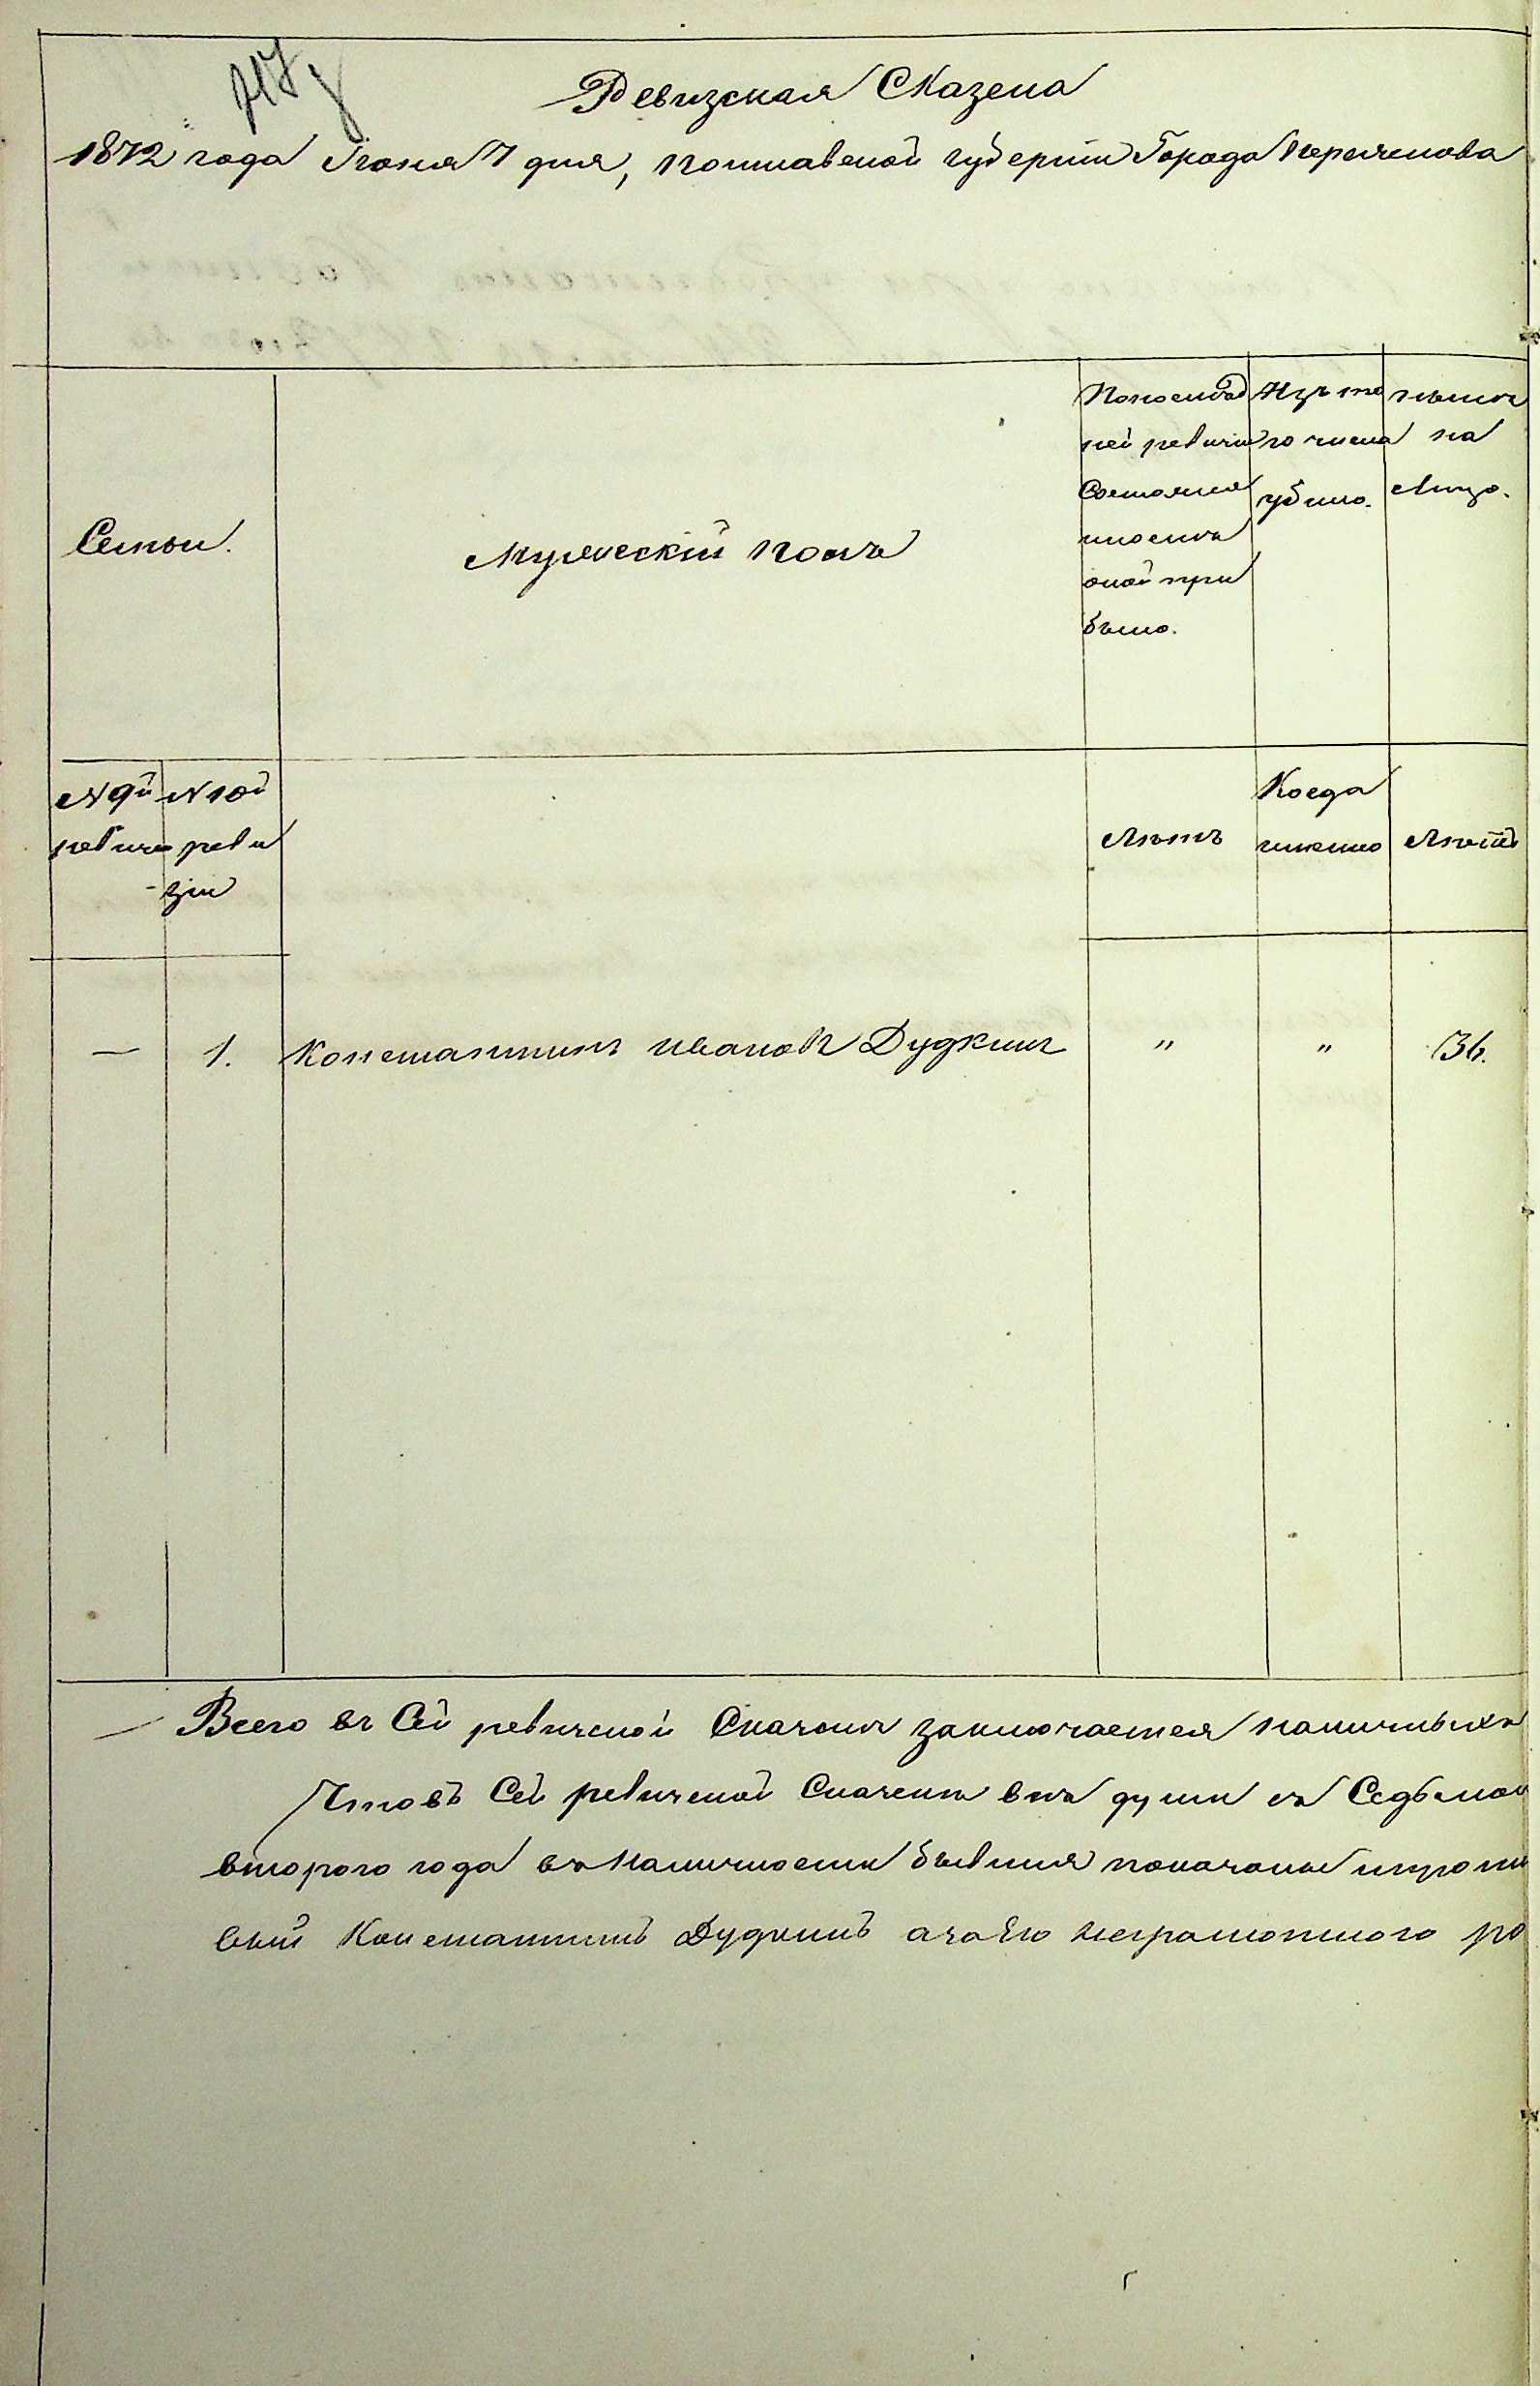 Ревизская Сказска
1872 года Июня 7 дня, Полтавской губерніи Города Переяслова
Семьи.
Мужескій полъ
По послѣд
ней ревизіи
состояло
и послѣ
оной при
было.
Изъ то
го числа
убыло.
нынѣ
на
Лицо.
№ 9й
ревизіи
№ 10й
реви
зіи
Лѣтъ
Когда
именно
Лѣтъ
—
1.
Константинъ Ивановъ Дудкинъ
"
"
36.
Всего въ Сей ревизской Сказкѣ заключается наличныхъ
Что въ Сей ревизской Сказкѣ всѣ души съ Седьмой
второго года въ наличности бывшія показаны и проп
Константинъ Дудкинъ а за его неграмотного ро